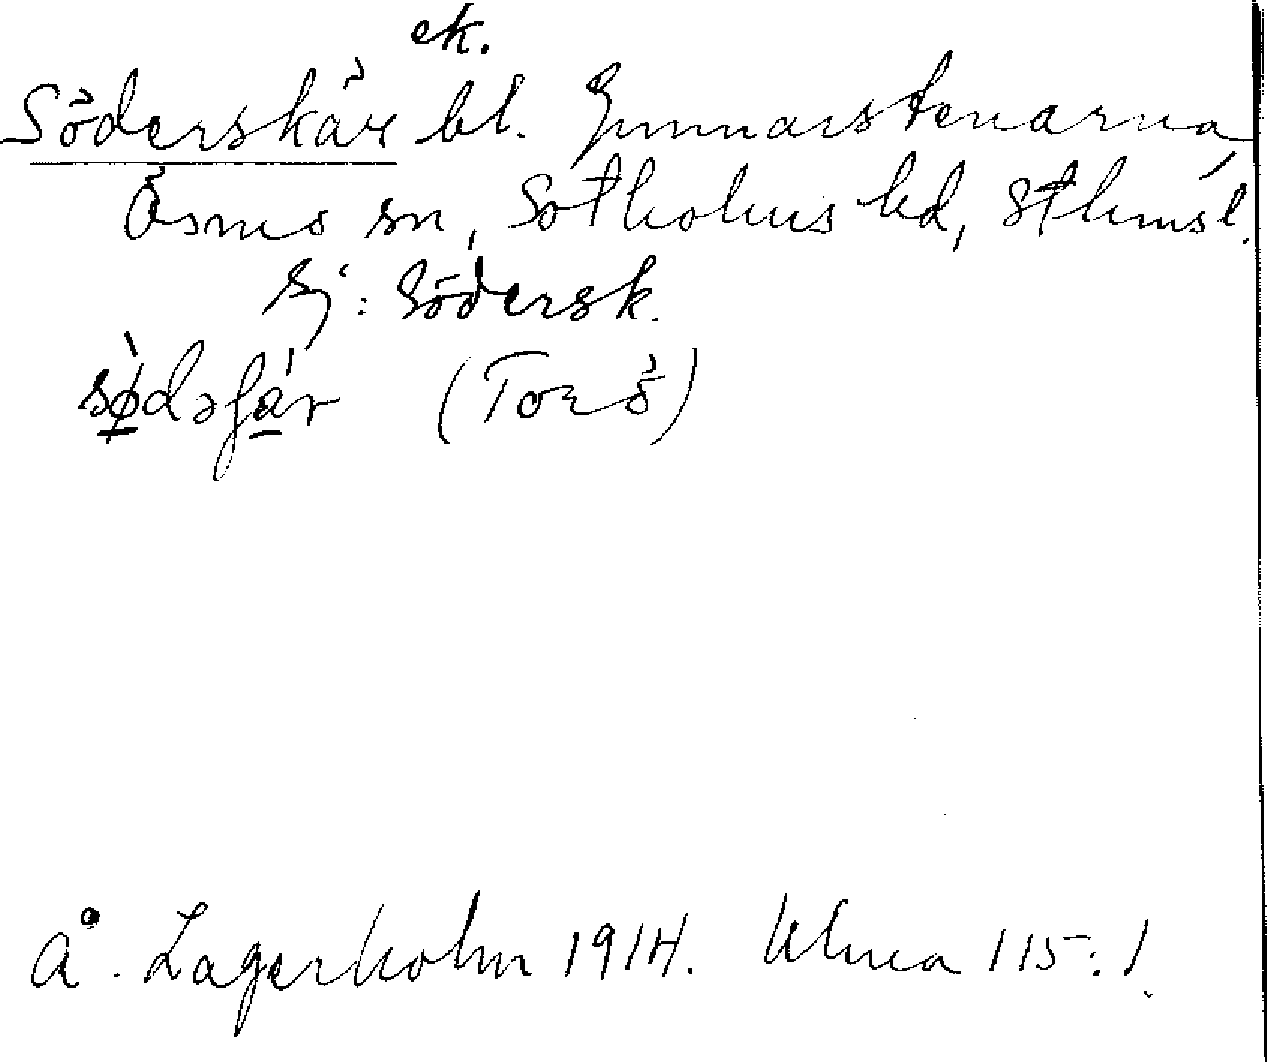 ek.
Söderskär bl. Gunnarstenarna,
Ösmo sn, Sotholms hd, Sthms l.
Sj: Södersk.
sø̀dəʃár (Torö)
Å. Lagerholm 1914. Ulma 115:1.